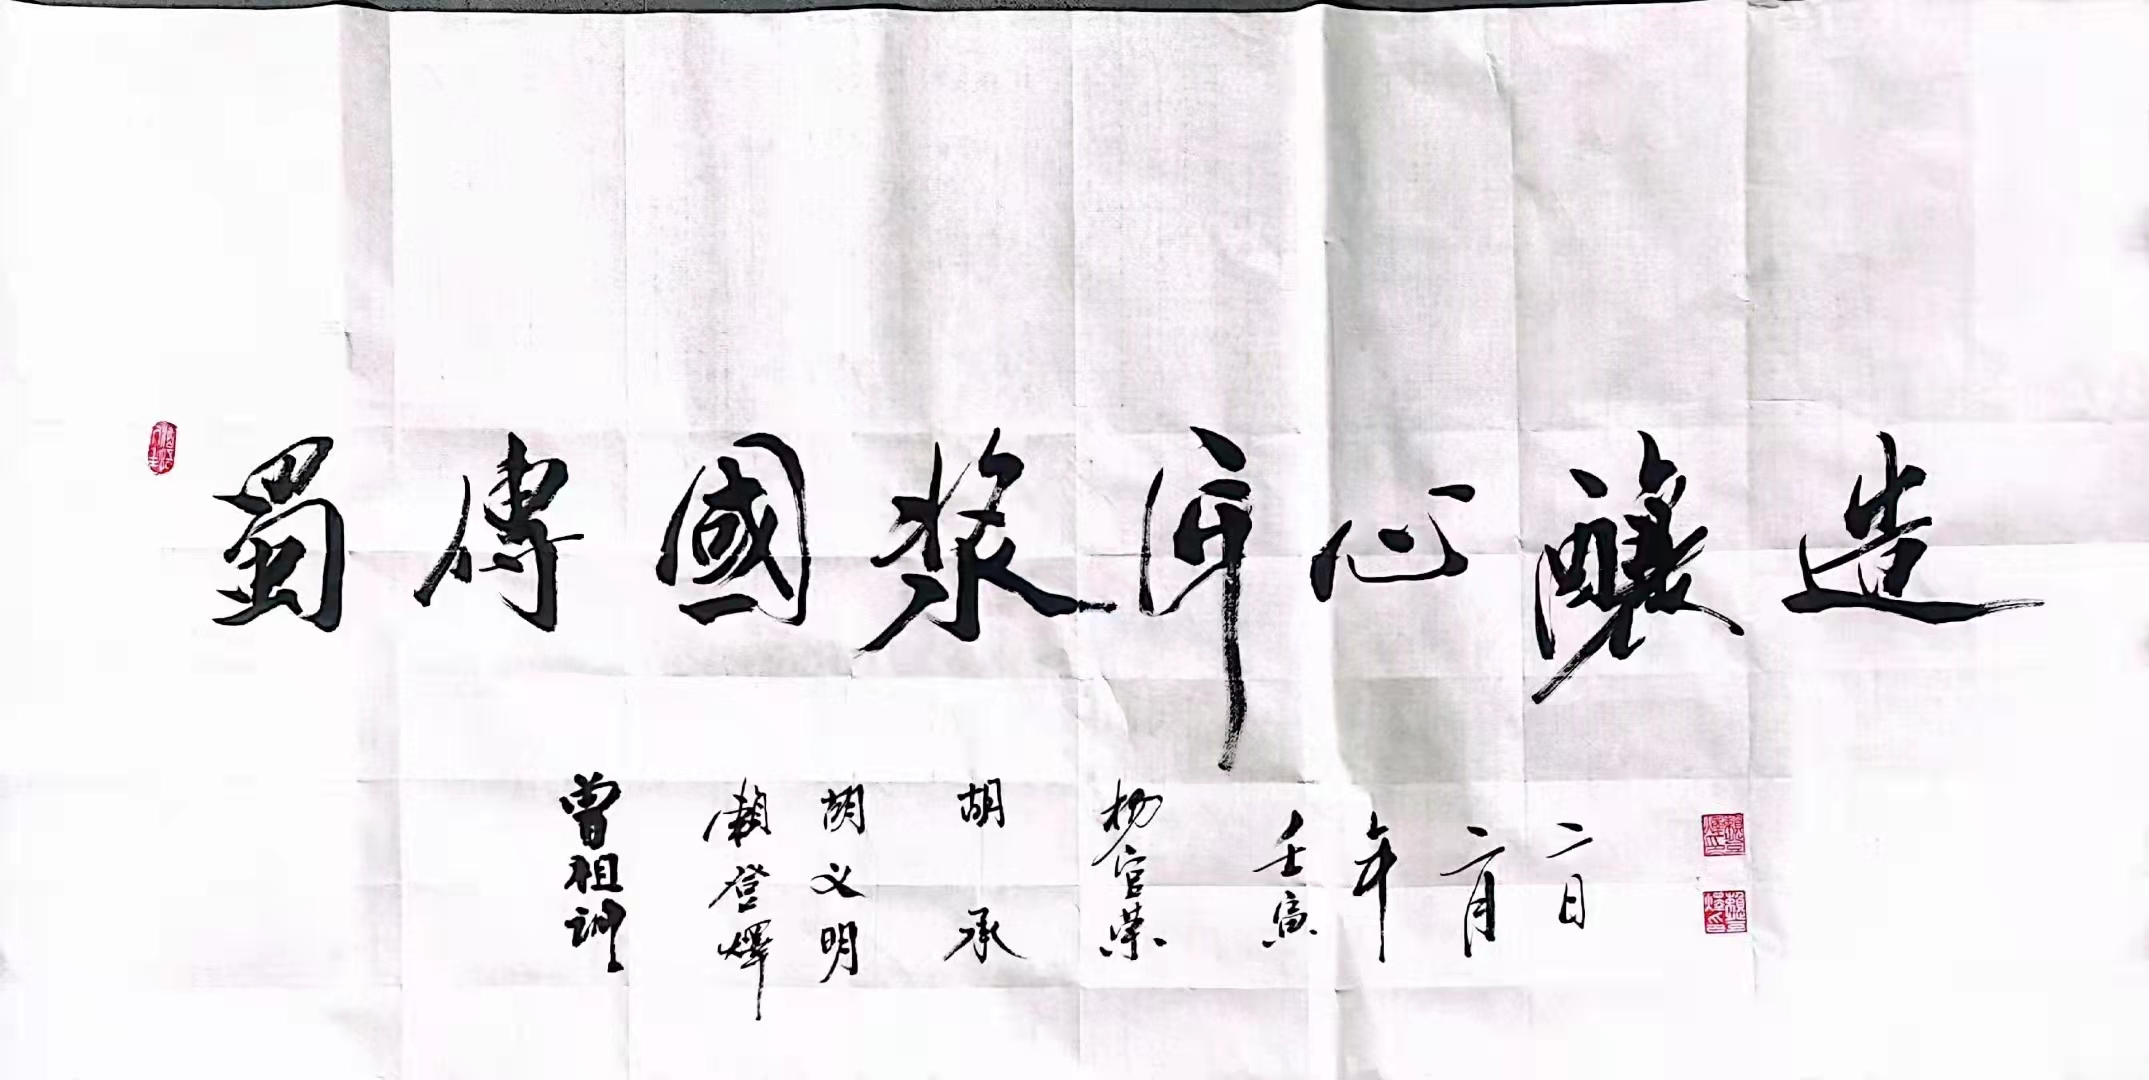 蜀傳國漿匠心釀造
曾祖訓
賴登燡
胡义明
胡承
杨官荣
壬寅年二月二日